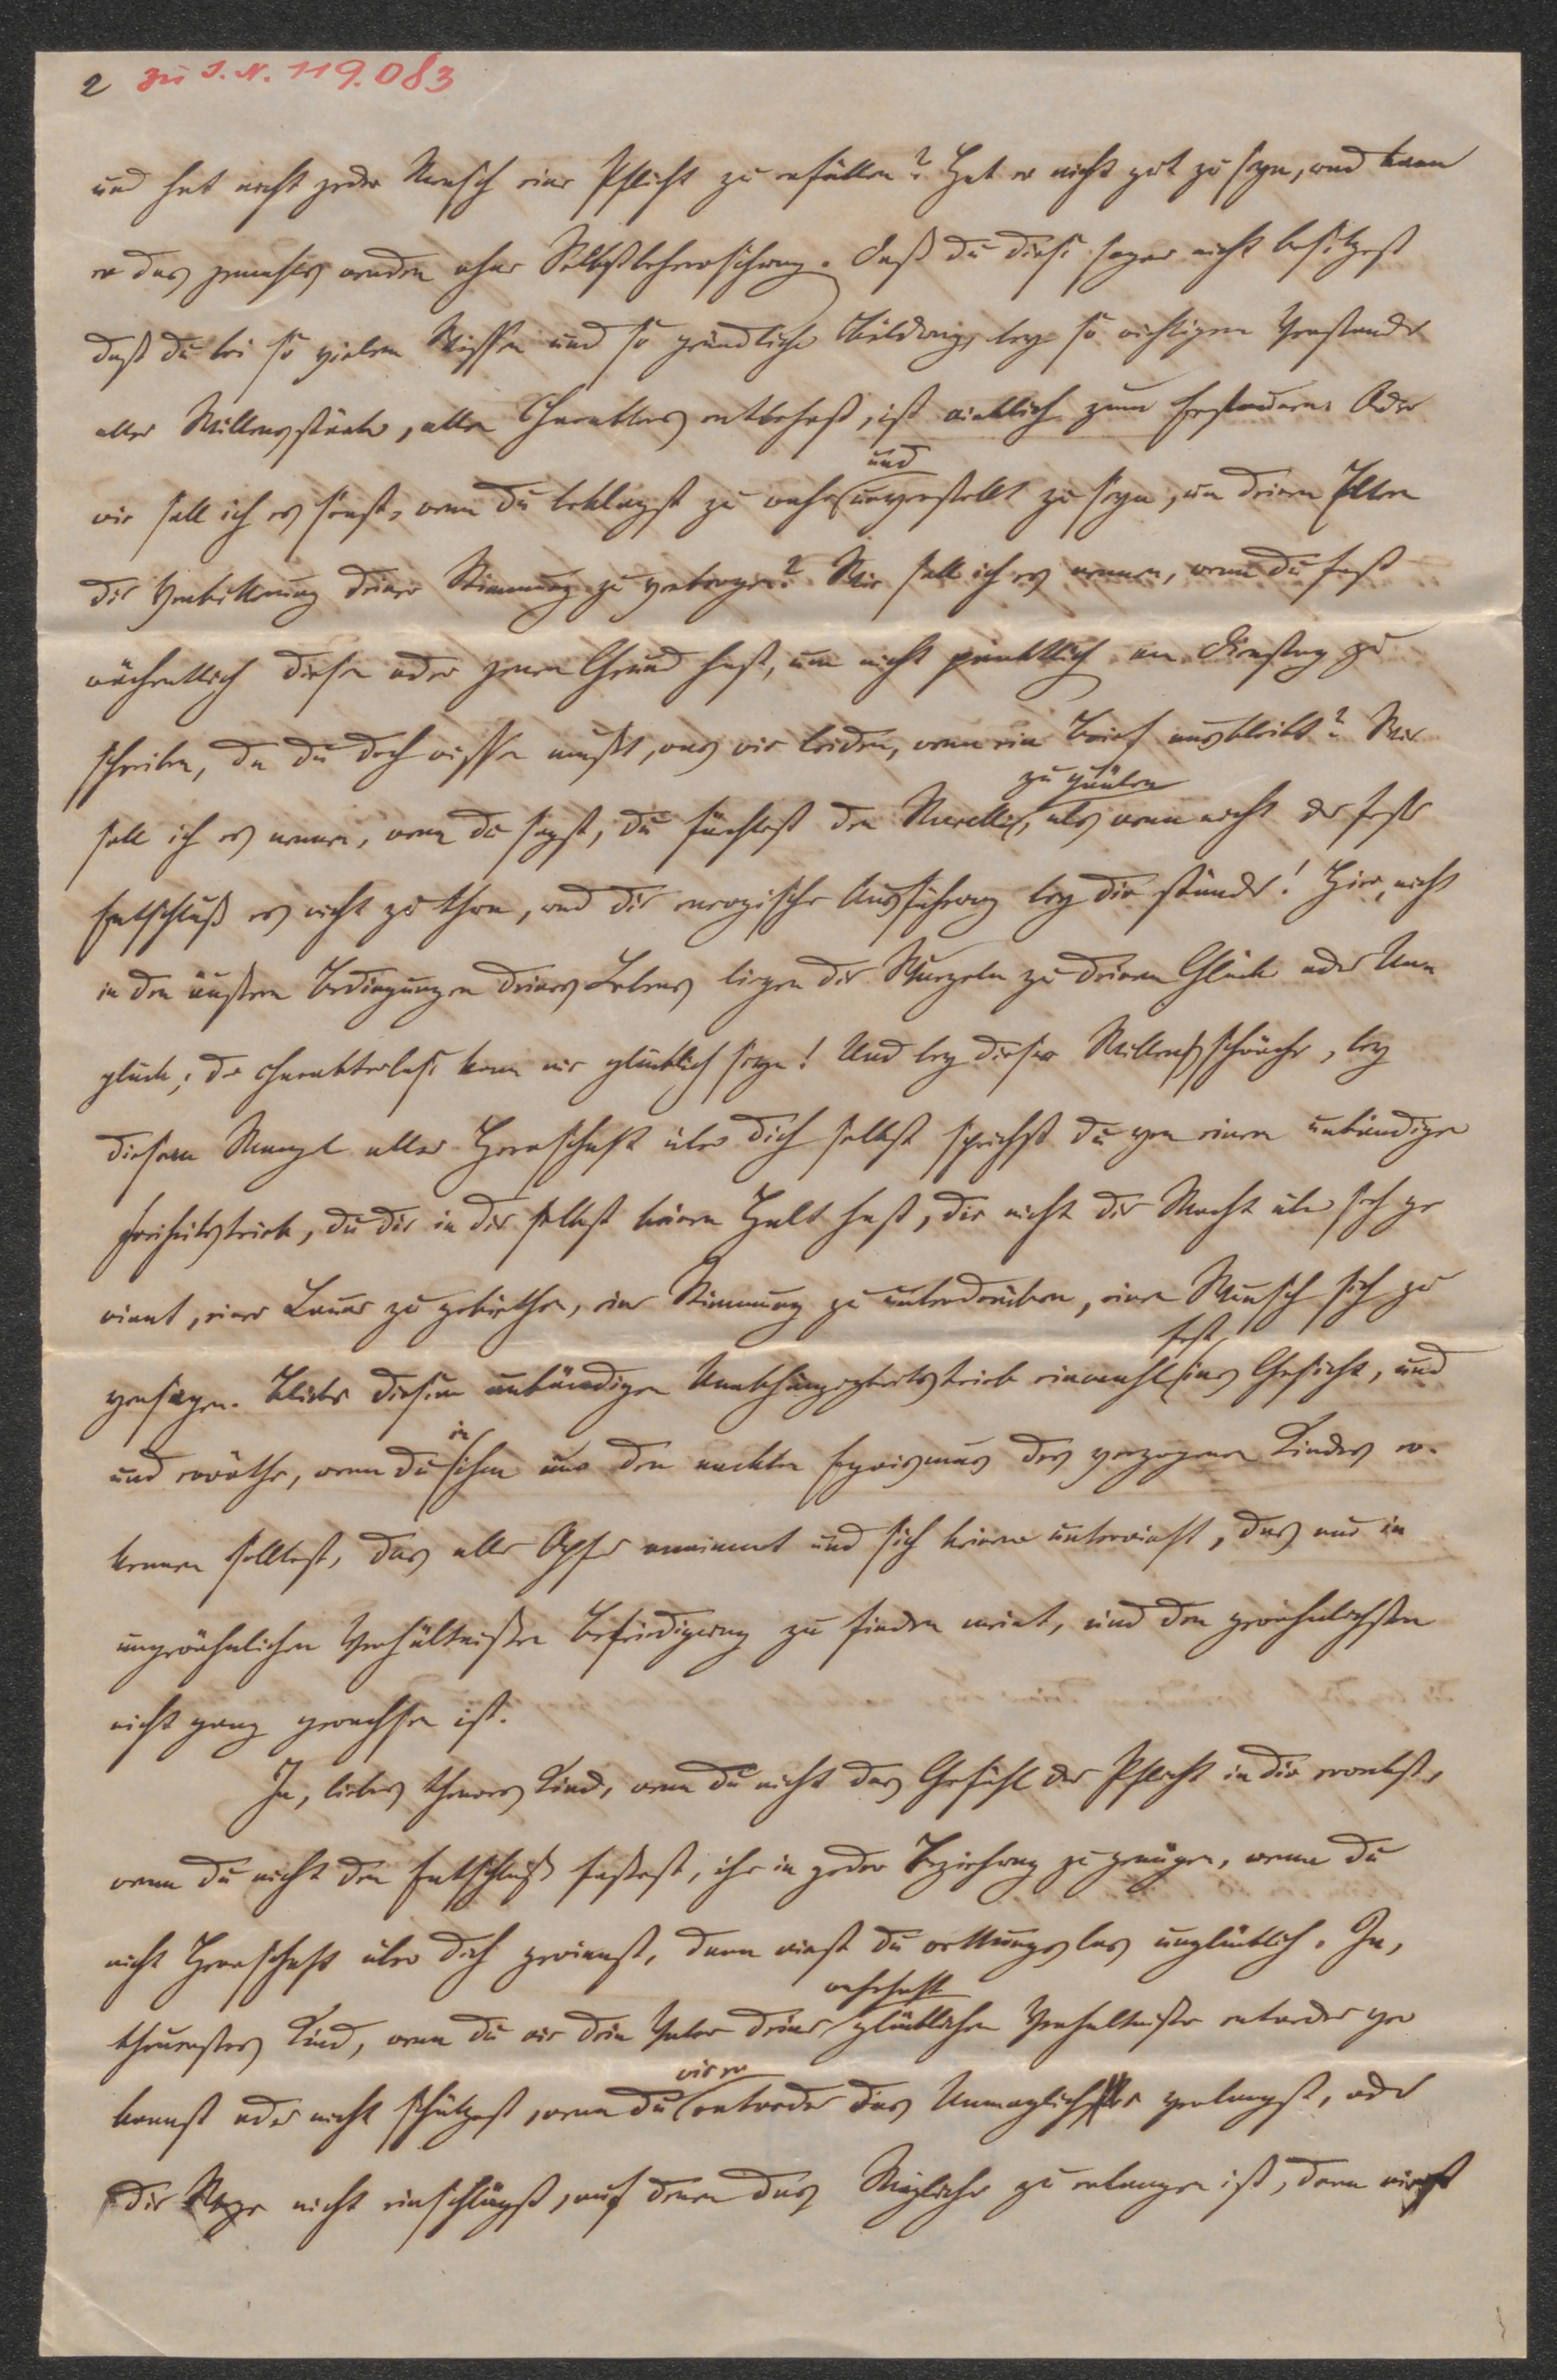 2 zu I. N. 119.083
und hat nicht jeder Mensch eine Pflicht zu erfüllen? Hat er nicht gut zu seyn, und kann
er das jemahls werden ohne Selbstbeherrschung. Daß du diese sogar nicht besitzest
daß du bei so vielem Wissen und so gründlicher Bildung, bey so richtigem Verstande
aller Willensstärke, allen Charakters entbehrst, ist wirklich zum Erstaunen. Oder
und
wie soll ich es sonst, wenn du beklagst zu wahr unverstellt zu seyn, um deinen Eltern
die Verbitterung deiner Stimmung zu verbergen? Wie soll ich es nennen, wenn du fast
wöchentlich diesen oder jenen Grund hast, um nicht pünktlich am Dienstag zu
schreiben, da du doch wissen mußt, was wir leiden, wenn ein Brief ausbleibt? Wie
zu quälen
soll ich es nennen, wenn du sagst, du fürchtest den Murelli, als wenn nicht der feste
Entschluß es nicht zu thun, und die energische Ausführung bey dir stünde! Hier, nicht
in den äußern Bedingungen deines Lebens liegen die Wurzeln zu deinem Glück oder Un
glück; der charakterlose kann nie glücklich seyn! Und bey dieser Willensschwäche, bey
diesem Mangel aller Herrschaft über dich selbst sprichst du von einem unbändigen
Freiheitstrieb, du die in dir selbst keinen Halt hast, die nicht die Macht über sich ge
winnt, einer Laune zu gebiethen, eine Stimmung zu unterdrücken, einen Wunsch sich zu
fest
versagen. Blicke diesem unbändigen Unabhängigkeitstrieb einmahl ins Gesicht, und
in
und erröthe, wenn du ihm nur den nackten Egoismus des verzogenen Kindes er-
kennen solltest, das alle Opfer annimmt und sich keinem unterwirft, das nur in
ungewöhnlichen Verhältnißen Befriedigung zu finden meint, und den gewöhnlichsten
nicht ganz gewachsen ist.
Ja, liebes theures Kind, wenn du nicht das Gefühl der Pflicht in dir erweckst,
wenn du nicht den Entschluß faßest, ihr in jeder Beziehung zu genügen, wenn du
nicht Herrschaft über dich gewinnst, dann wirst du rettungslos unglücklich. Ja,
wahrhaft
theuerstes Kind, wenn du wie dein Vater deine glücklichen Verhältniße entweder ver
wie er
kennst oder nicht schätzest, wenn du entweder das Unmögliche verlangst, oder
die Wege nicht einschlägst, auf denen das Mögliche zu erlangen ist, dann wirst